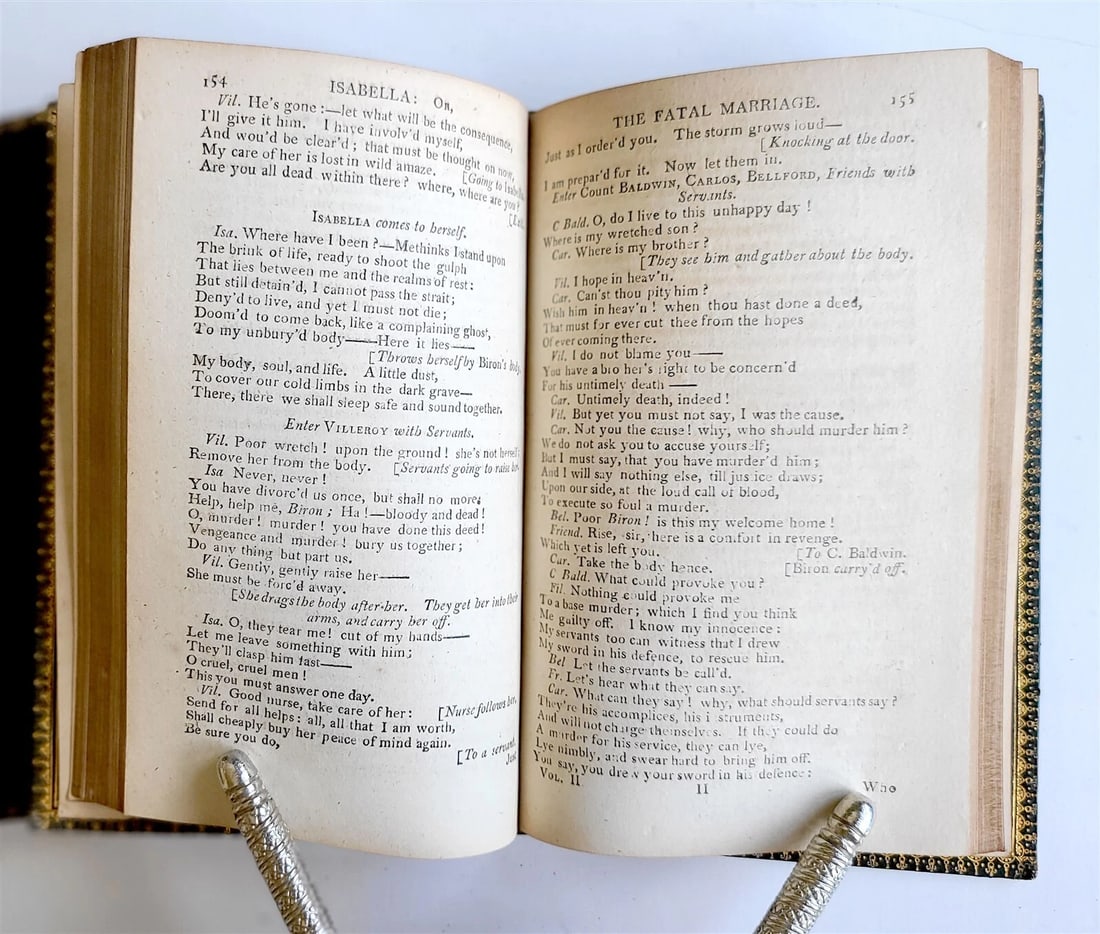 154
ISABELLA: OR,
Vil. He's gone:—let what will be the consequence,
I'll give it him. I have involv'd myself,
And wou'd be clear'd; that must be thought on now,
My care of her is lost in wild amaze. [Going to
Are you all dead within there? where, where are you?
ISABELLA comes to herself.
Isa. Where have I been?—Methinks I stand upon
The brink of life, ready to shoot the gulph
That lies between me and the realms of rest:
But still detain'd, I cannot pass the strait;
Deny'd to live, and yet I must not die;
Doom'd to come back, like a complaining ghost,
To my unbury'd body——Here it lies——
[Throws herself by Biron's
My body, soul, and life. A little dust,
To cover our cold limbs in the dark grave—
There, there we shall sleep safe and sound together.
Enter VILLEROY with Servants.
Vil. Poor wretch! upon the ground! she's not
Remove her from the body. [Servants going to raise
Isa Never, never!
You have divorc'd us once, but shall no more;
Help, help me, Biron; Ha!—bloody and dead!
O, murder! murder! you have done this deed!
Vengeance and murder! bury us together;
Do any thing but part us.
Vil. Gently, gently raise her——
She must be forc'd away.
[She drags the body after her. They get her into their
arms, and carry her off.
Isa. O, they tear me! cut of my hands——
Let me leave something with him;
They'll clasp him fast——
O cruel, cruel men!
This you must answer one day.
Vil. Good nurse, take care of her: [Nurse follows her.
Send for all helps: all, all that I am worth,
Shall cheaply buy her peace of mind again.
Be sure you do, [To a servant.
Just
THE FATAL MARRIAGE. 155
Just as I order'd you. The storm grows loud—
[Knocking at the door.
I am prepar'd for it. Now let them in.
Enter Count BALDWIN, CARLOS, BELLFORD, Friends with
Servants.
C Bald. O, do I live to this unhappy day!
Where is my wretched son?
Car. Where is my brother?
[They see him and gather about the body.
Vil. I hope in heav'n.
Car. Can'st thou pity him?
Wish him in heav'n! when thou hast done a deed,
That must for ever cut thee from the hopes
Of ever coming there.
Vil. I do not blame you——
You have a bro her's right to be concern'd
For his untimely death——
Car. Untimely death, indeed!
Vil. But yet you must not say, I was the cause.
Car. Not you the cause! why, who should murder him?
We do not ask you to accuse yourself;
But I must say, that you have murder'd him;
And I will say nothing else, till jus ice draws;
Upon our side, at the loud call of blood,
To execute so foul a murder.
Bel. Poor Biron! is this my welcome home!
Friend. Rise, sir, here is a comfort in revenge.
Which yet is left you. [To C. Baldwin.
Car. Take the body hence. [Biron carry'd off.
C Bald. What could provoke you?
Vil. Nothing could provoke me
To a base murder; which I find you think
Me guilty off. I know my innocence:
My servants too can witness that I drew
My sword in his defence, to rescue him.
Bel Let the servants be call'd.
Fr. Let's hear what they can say.
Car. What can they say! why, what should servants say?
They're his accomplices, his i struments,
And will not charge themselves. If they could do
A murder for his service, they can lye,
Lye nimbly, and swear hard to bring him off.
You say, you drew your sword in his defence:
VOL. II II Who